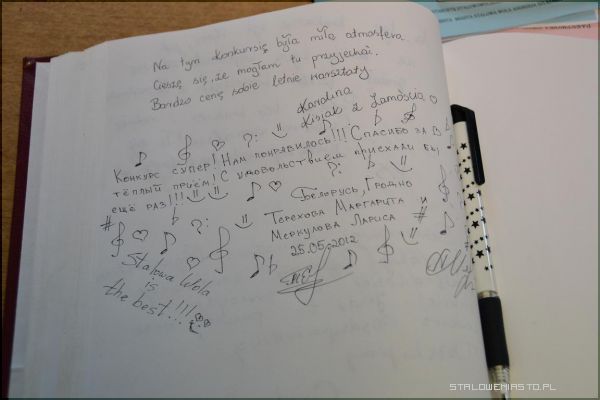 Na tym konkursie była miła atmosfera
Cieszę się, że mogłam tu przyjechać.
Bardzo cenę sobie letnie warsztaty
Karolina
Kisiak z Zamościa
Конкурс супер! Нам понравилось!!! Спасибо за
тёплый приём! С удовольствием приехали бы
ещё раз!!!
Беларусь, Гродно
Терехова Маргарита и
Меркулова Лариса
25.05.2012
Stalowa Wola
is
the best...!!!
STALOWEMIASTO.PL